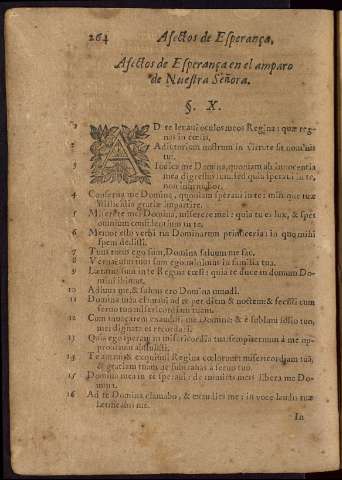 264 Afectos de Esperança.
Afectos de Esperança en el amparo
de Nuestra Señora.
§. X.
1 AD te leuaui oculos meos Regina: quæ reg-
nas in cœlis.
2 Adiutorium nostrum in virtute sit nominis
tui.
3 Iudica me Domina, quoniam ab innocentia
mea digressus sum: sed quia speraui in te,
non infirmabor.
4 Conserua me Domina, quoniam speraui in te: mihique tuæ
stillicidia gratiæ impartire.
5 Miserere mei Domina, miserere mei: quia tu es lux, & spes
omnium confidentium in te.
6 Memor esto verbi tui Dominarum princeceria: in quo mihi
spem dedisti.
7 Tuus totus ego sum, Domina saluum me fac.
8 Vernaculus tuus sum ego: nominus in familia tua.
9 Lætatus sum in te Regina cœli: quia te duce in domum Do-
mini ibimus.
10 Adiuua me, & saluus ero Domina mundi.
11 Domina mea clamaui ad te per diem & noctem: & fecisti cum
seruo tuo misericordiam tuam.
12 Cum inuocarem exaudisti me Domina: & è sublimi solio tuo,
mei dignata es recordari.
13 Quia ego speraui in misericordia tua: sempiternum à me op-
probrium abstulisti.
14 Te amaui & exquisiui Regina cœlorum: misericordiam tuã,
& gratiam tuam ne subtrahas à seruo tuo.
15 Domina mea in te speraui: de inimicis meis libera me Do-
mina.
16 Ad te Domina clamabo, & exaudies me: in voce laudis tuæ
lætificabis me.
In